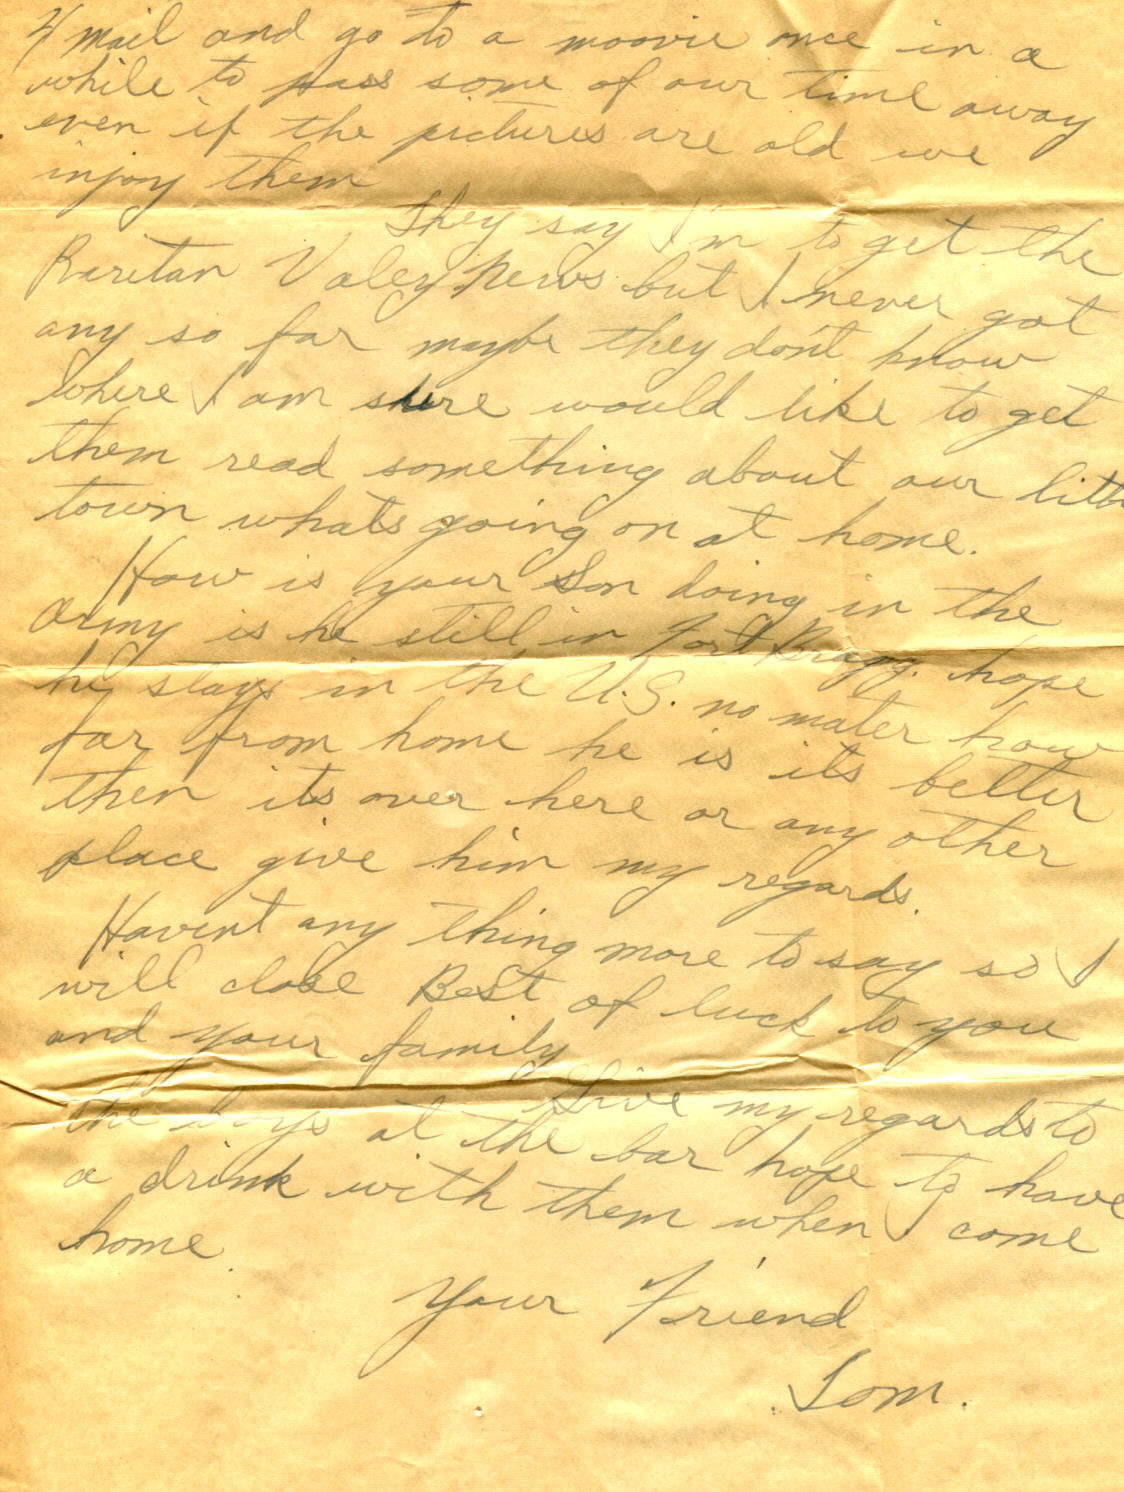 mail and go to a moovie once in a
while to pass some of our time away
even if the pictures are old we
injoy them
They say I'm to get the
Raritan Valey News but I never got
any so far maybe they don't know
where I am shure would like to get
them read something about our little
town whats going on at home.
How is your Son doing in the
Army is he still in Fort Bragg. hope
he stays in the U.S. no mater how
far from home he is its better
then its over here or any other
place give him my regards.
Havent any thing more to say so I
will close Best of luck to you
and your family
Give my regards to
the boys at the bar hope to have
a drink with them when I come
home.
Your Friend
Tom.